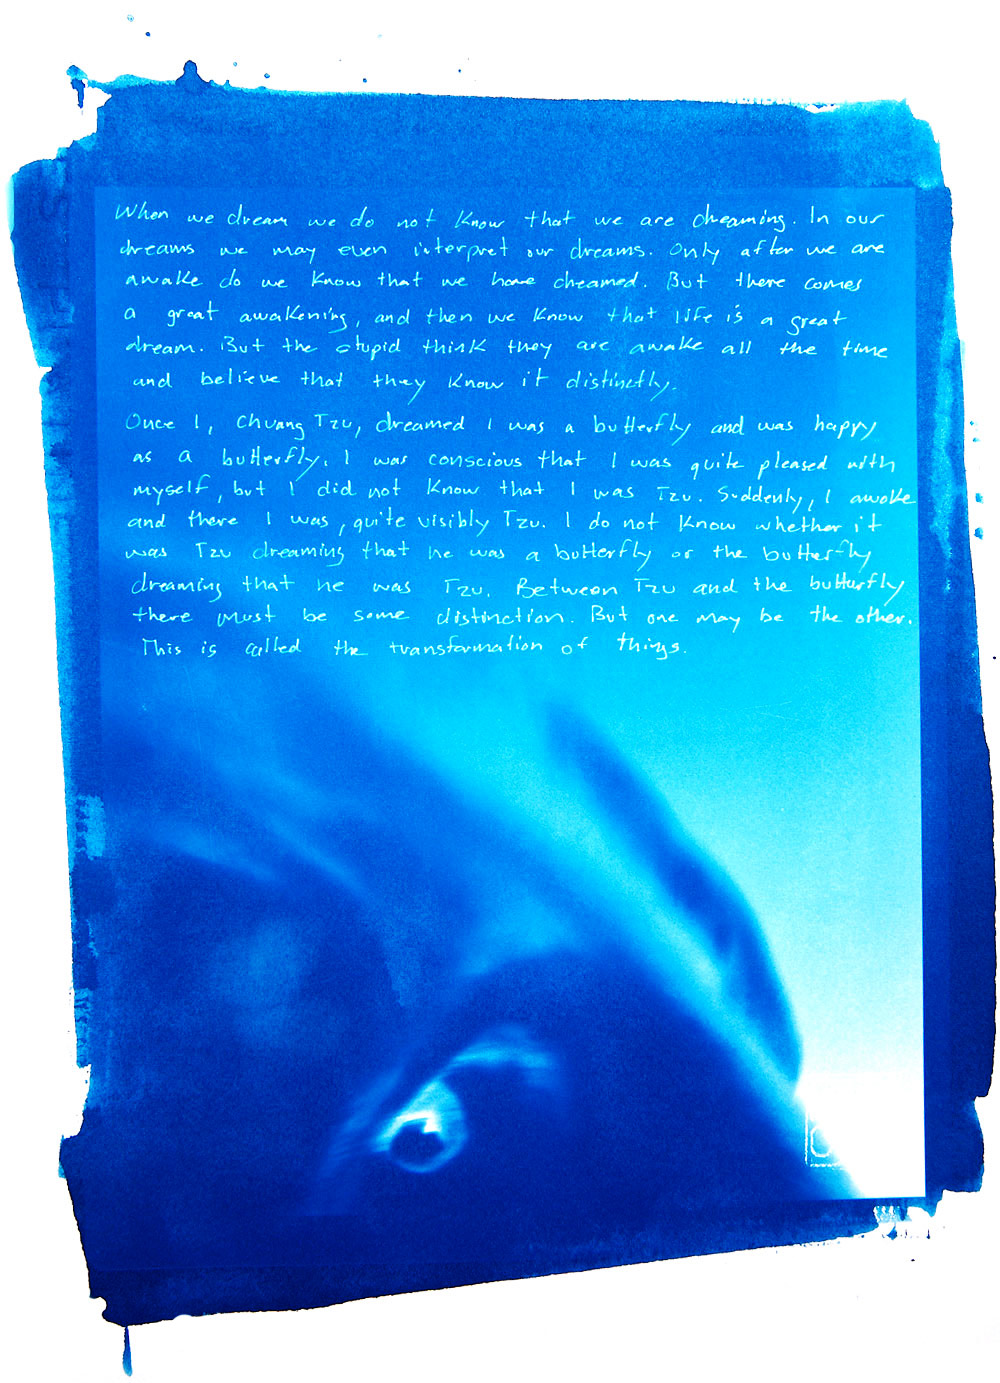 When we dream we do not know that we are dreaming. In our
dreams we may even interpret our dreams. Only after we are
awake do we know that we have dreamed. But there comes
a great awakening, and then we know that life is a great
dream. But the stupid think they are awake all the time
and believe that they know it distinctly.
Once I, Chuang Tzu, dreamed I was a butterfly and was happy
as a butterfly. I was conscious that I was quite pleased with
myself, but I did not know that I was Tzu. Suddenly, I awoke
and there I was, quite visibly Tzu. I do not know whether it
was Tzu dreaming that he was a butterfly or the butterfly
dreaming that he was Tzu. Between Tzu and the butterfly
there must be some distinction. But one may be the other.
This is called the transformation of things.